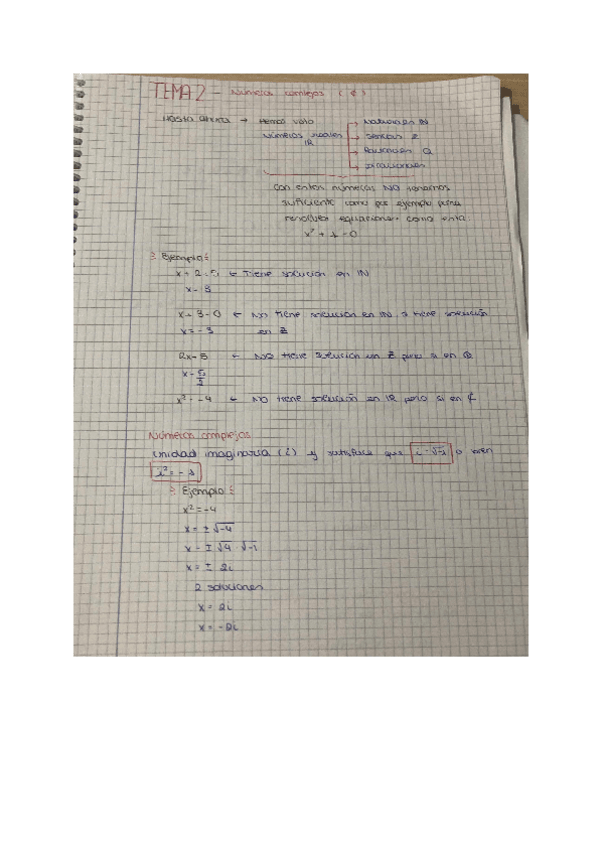 TEMA 2 - Números complejos (ℂ)
Hasta ahora → Hemos visto → Naturales ℕ
números reales → Ź
ℝ → Racionales ℚ
→ Irracionales
Con estos números NO tenemos
suficiente como por ejemplo para
resolver ecuaciones como esta:
x² + 1 = 0
Ejemplo:
x + 2 = 5 ← Tiene solución en ℕ
x = 3
x + 3 = 0 ← No tiene solución en ℕ si tiene solución
x = -3 en ℤ
← NO tiene solución en ℤ pero si en ℚ
x² = -4 ← NO tiene solución en ℝ pero si en ℂ
Números complejos
Unidad imaginaria (i) y satisface que i = √-1 o bien
i² = -1
Ejemplo:
x² = -4
x = ± √-4
x = ± √4 · √-1
x = ± 2i
2 soluciones
x = 2i
x = -2i